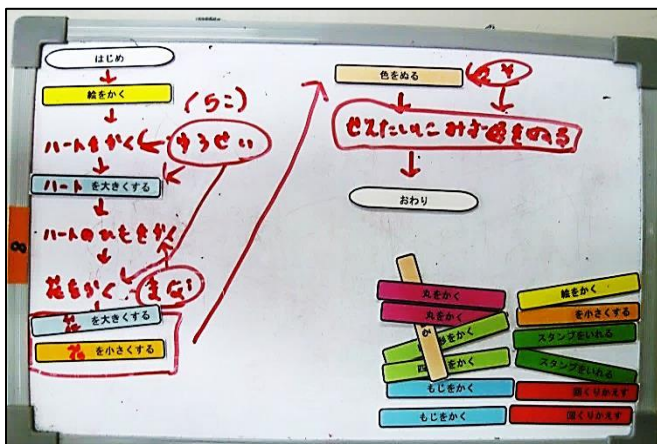 はじめ
絵をかく
(5こ)
ハートをかく ゆうせい
ハート を大きくする
ハートのひもをかく
花をかく
花 を大きくする
花 を小さくする
色をぬる
おわり
丸をかく
丸をかく
形をかく
四 をかく
もじをかく
もじをかく
絵をかく
を小さくする
スタンプをいれる
スタンプをいれる
回くりかえす
回くりかえす
8